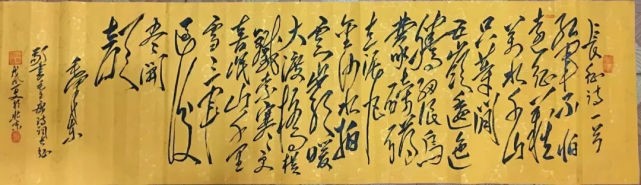 长征诗一首
红军不怕
远征难
万水千山
只等闲
五岭逶迤
腾细浪乌
蒙磅礴
走泥丸
金沙水拍
云崖暖
大渡桥横
铁索寒更
喜岷山千里
雪三军
过后
尽开
颜
毛泽东